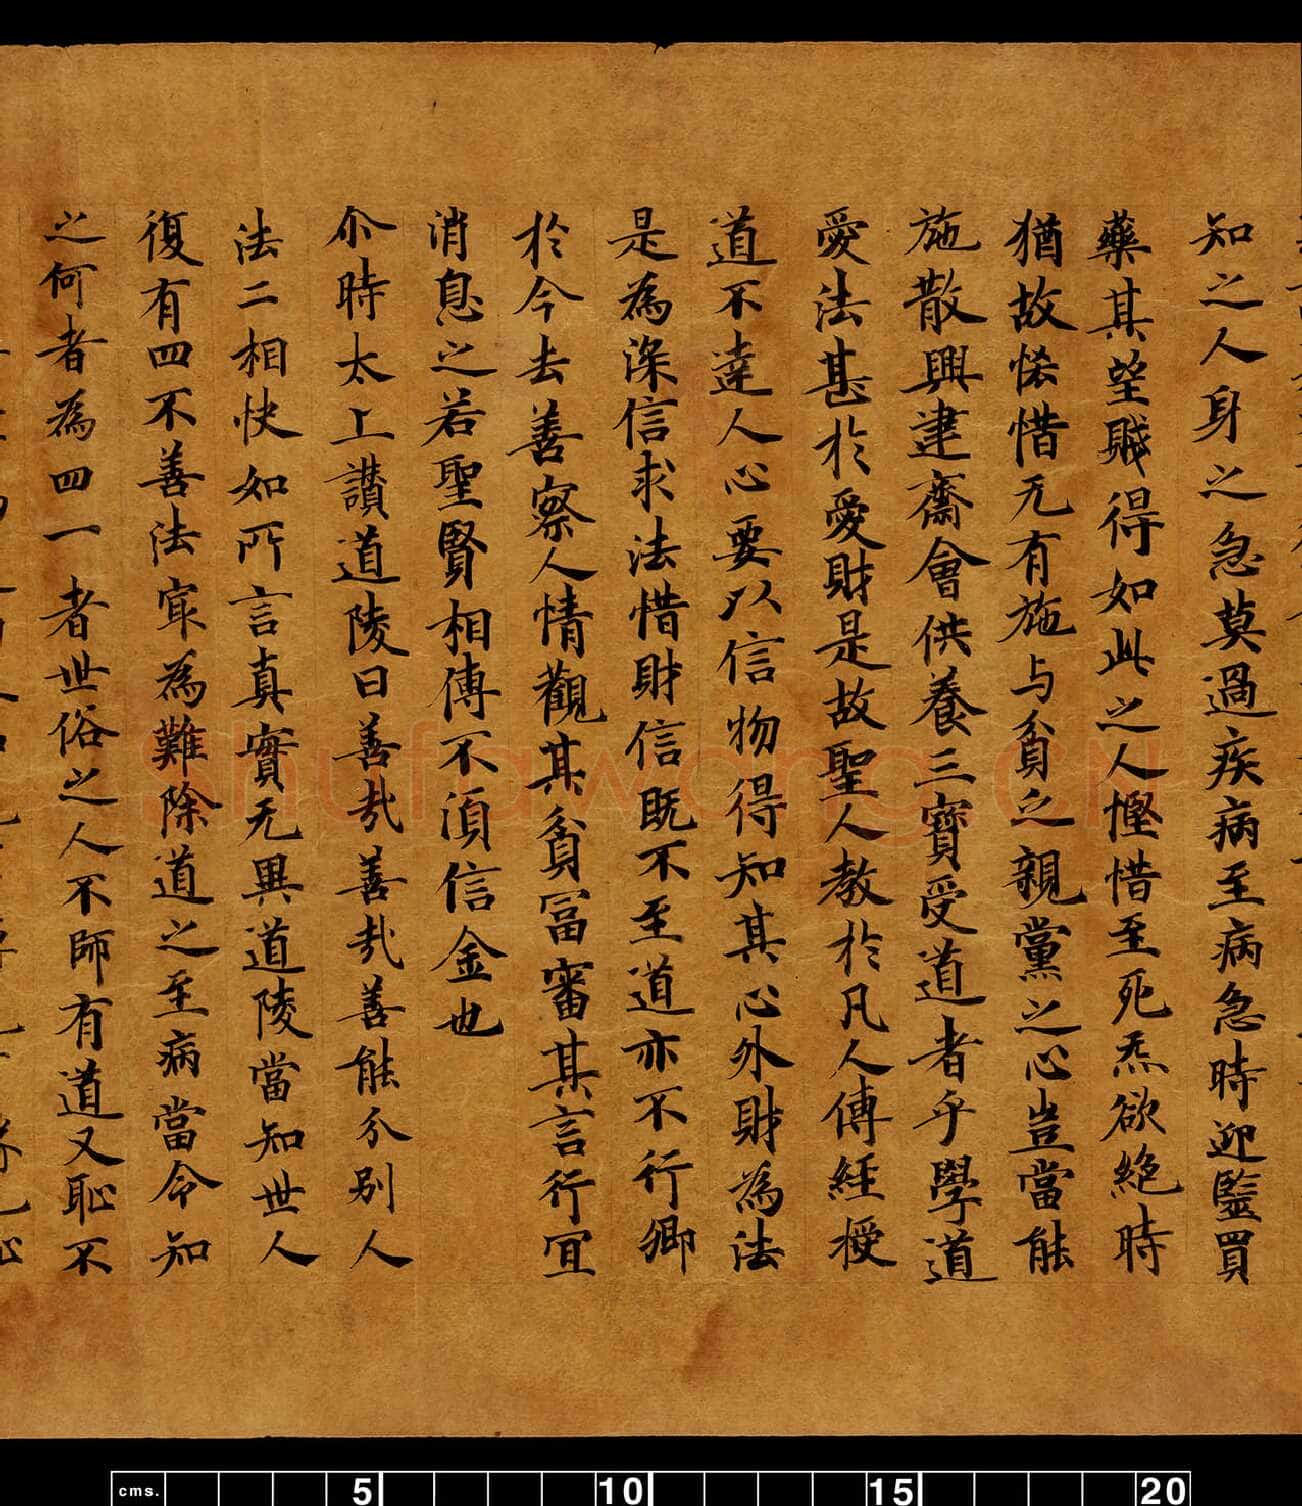 知之人身之急莫過疾病至病急時迎毉買
藥其望賤得如此之人慳惜至死炁欲絕時
猶故悋惜无有施与貧之親黨之心豈當能
施散興建齋會供養三寶受道者乎學道
愛法甚於愛財是故聖人教於凡人傳經授
道不達人心要以信物得知其心外財為法
是為深信求法惜財信既不至道亦不行卿
於今去善察人情觀其貧冨審其言行冝
消息之若聖賢相傳不須信金也
尒時太上讃道陵曰善哉善哉善能分別人
法二相快如所言真實无異道陵當知世人
復有四不善法㝡為難除道之至病當令知
之何者為四一者世俗之人不師有道又恥不
shufawang.cn
cms. 5 10 15 20